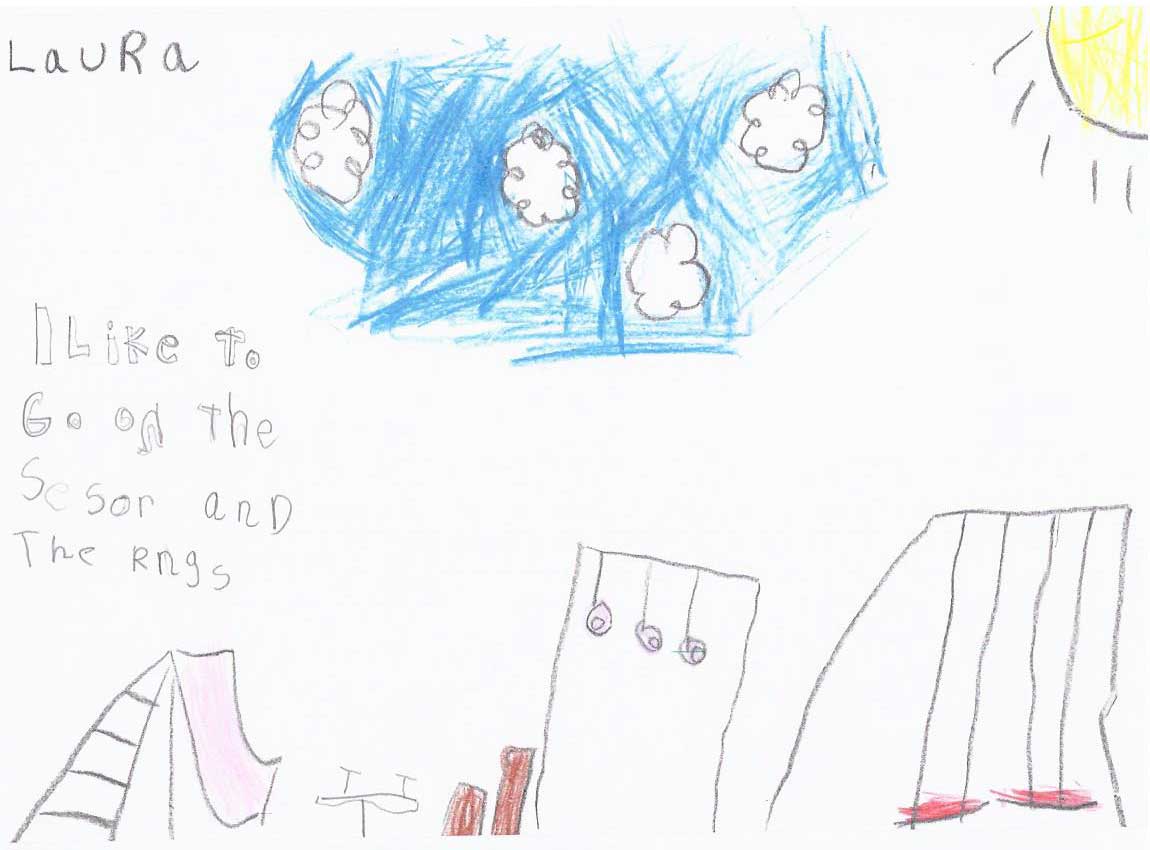 LauRa
I Like To
Go on The
Sesor anD
The Rngs